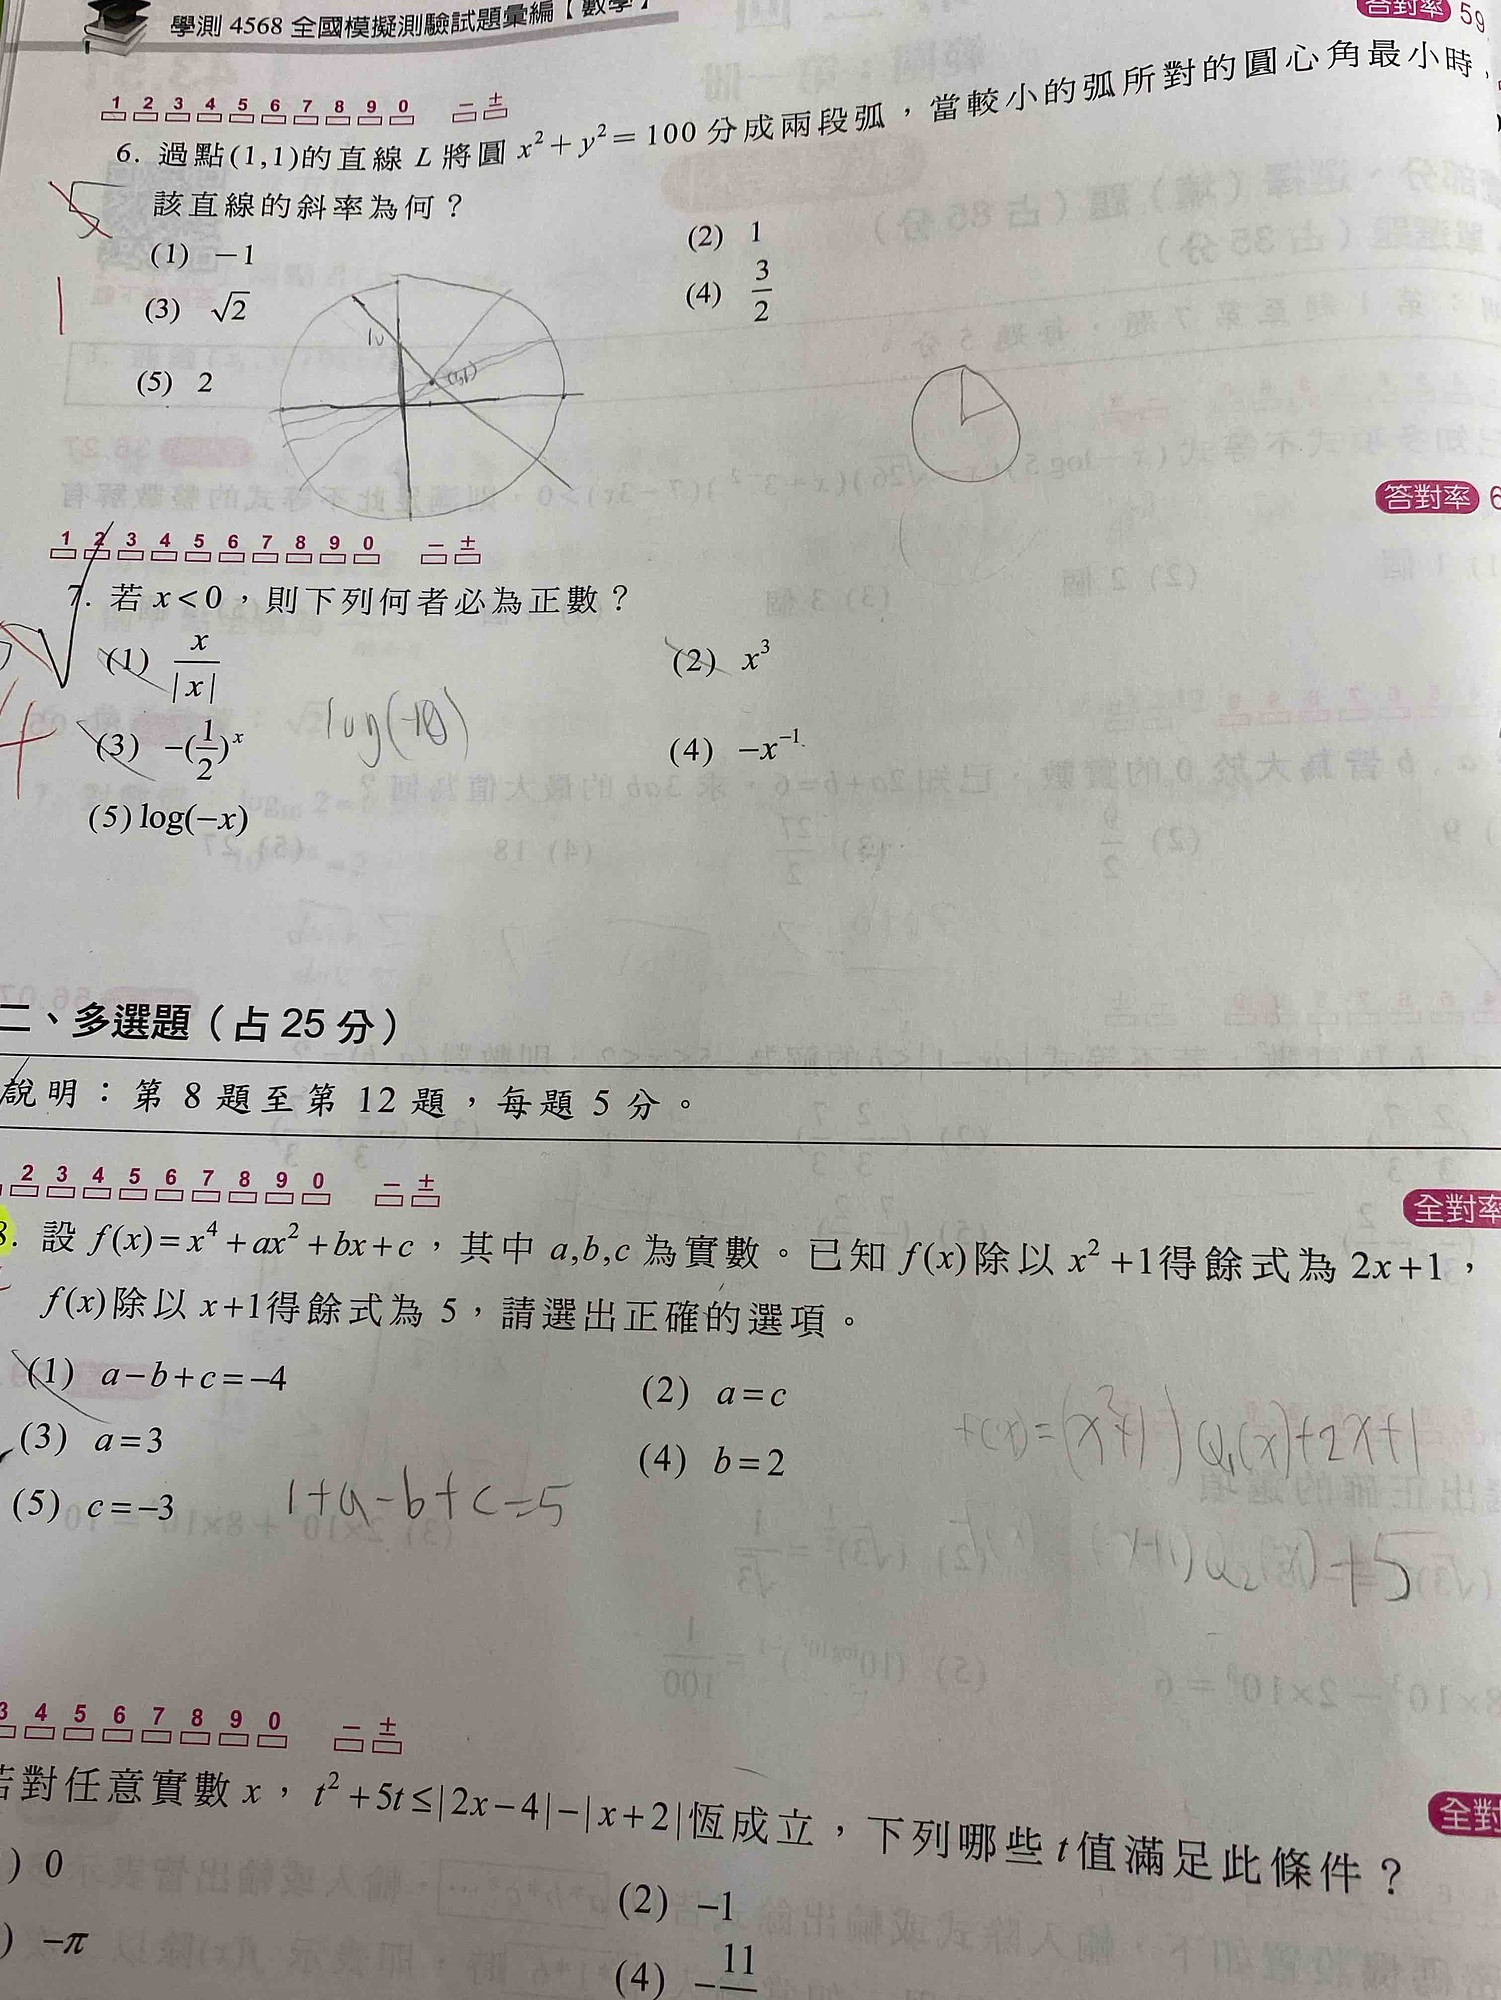 學測 4568 全國模擬測驗試題彙編【數學】
答對率 59.
1 2 3 4 5 6 7 8 9 0 − ±
6. 過點(1,1)的直線 L 將圓 x²+y²=100 分成兩段弧，當較小的弧所對的圓心角最小時，
該直線的斜率為何？
(1) −1
(2) 1
(3) √2
(4) 3/2
(5) 2
10
(1,1)
答對率 6
1 2 3 4 5 6 7 8 9 0 − ±
7. 若 x<0，則下列何者必為正數？
(1) x/|x|
(2) x³
(3) −(1/2)ˣ
(4) −x⁻¹
log(−10)
4
(5) log(−x)
二、多選題（占 25 分）
說明：第 8 題至第 12 題，每題 5 分。
2 3 4 5 6 7 8 9 0 − ±
全對率
8. 設 f(x)=x⁴+ax²+bx+c，其中 a,b,c 為實數。已知 f(x)除以 x²+1得餘式為 2x+1，
f(x)除以 x+1得餘式為 5，請選出正確的選項。
(1) a−b+c=−4
(2) a=c
(3) a=3
(4) b=2
(5) c=−3
f(x)=(x²+1)Q₁(x)+2x+1
1+a−b+c=5
3 4 5 6 7 8 9 0 − ±
全對
若對任意實數 x，t²+5t≤|2x−4|−|x+2|恆成立，下列哪些 t值滿足此條件？
) 0
(2) −1
) −π
(4) −11